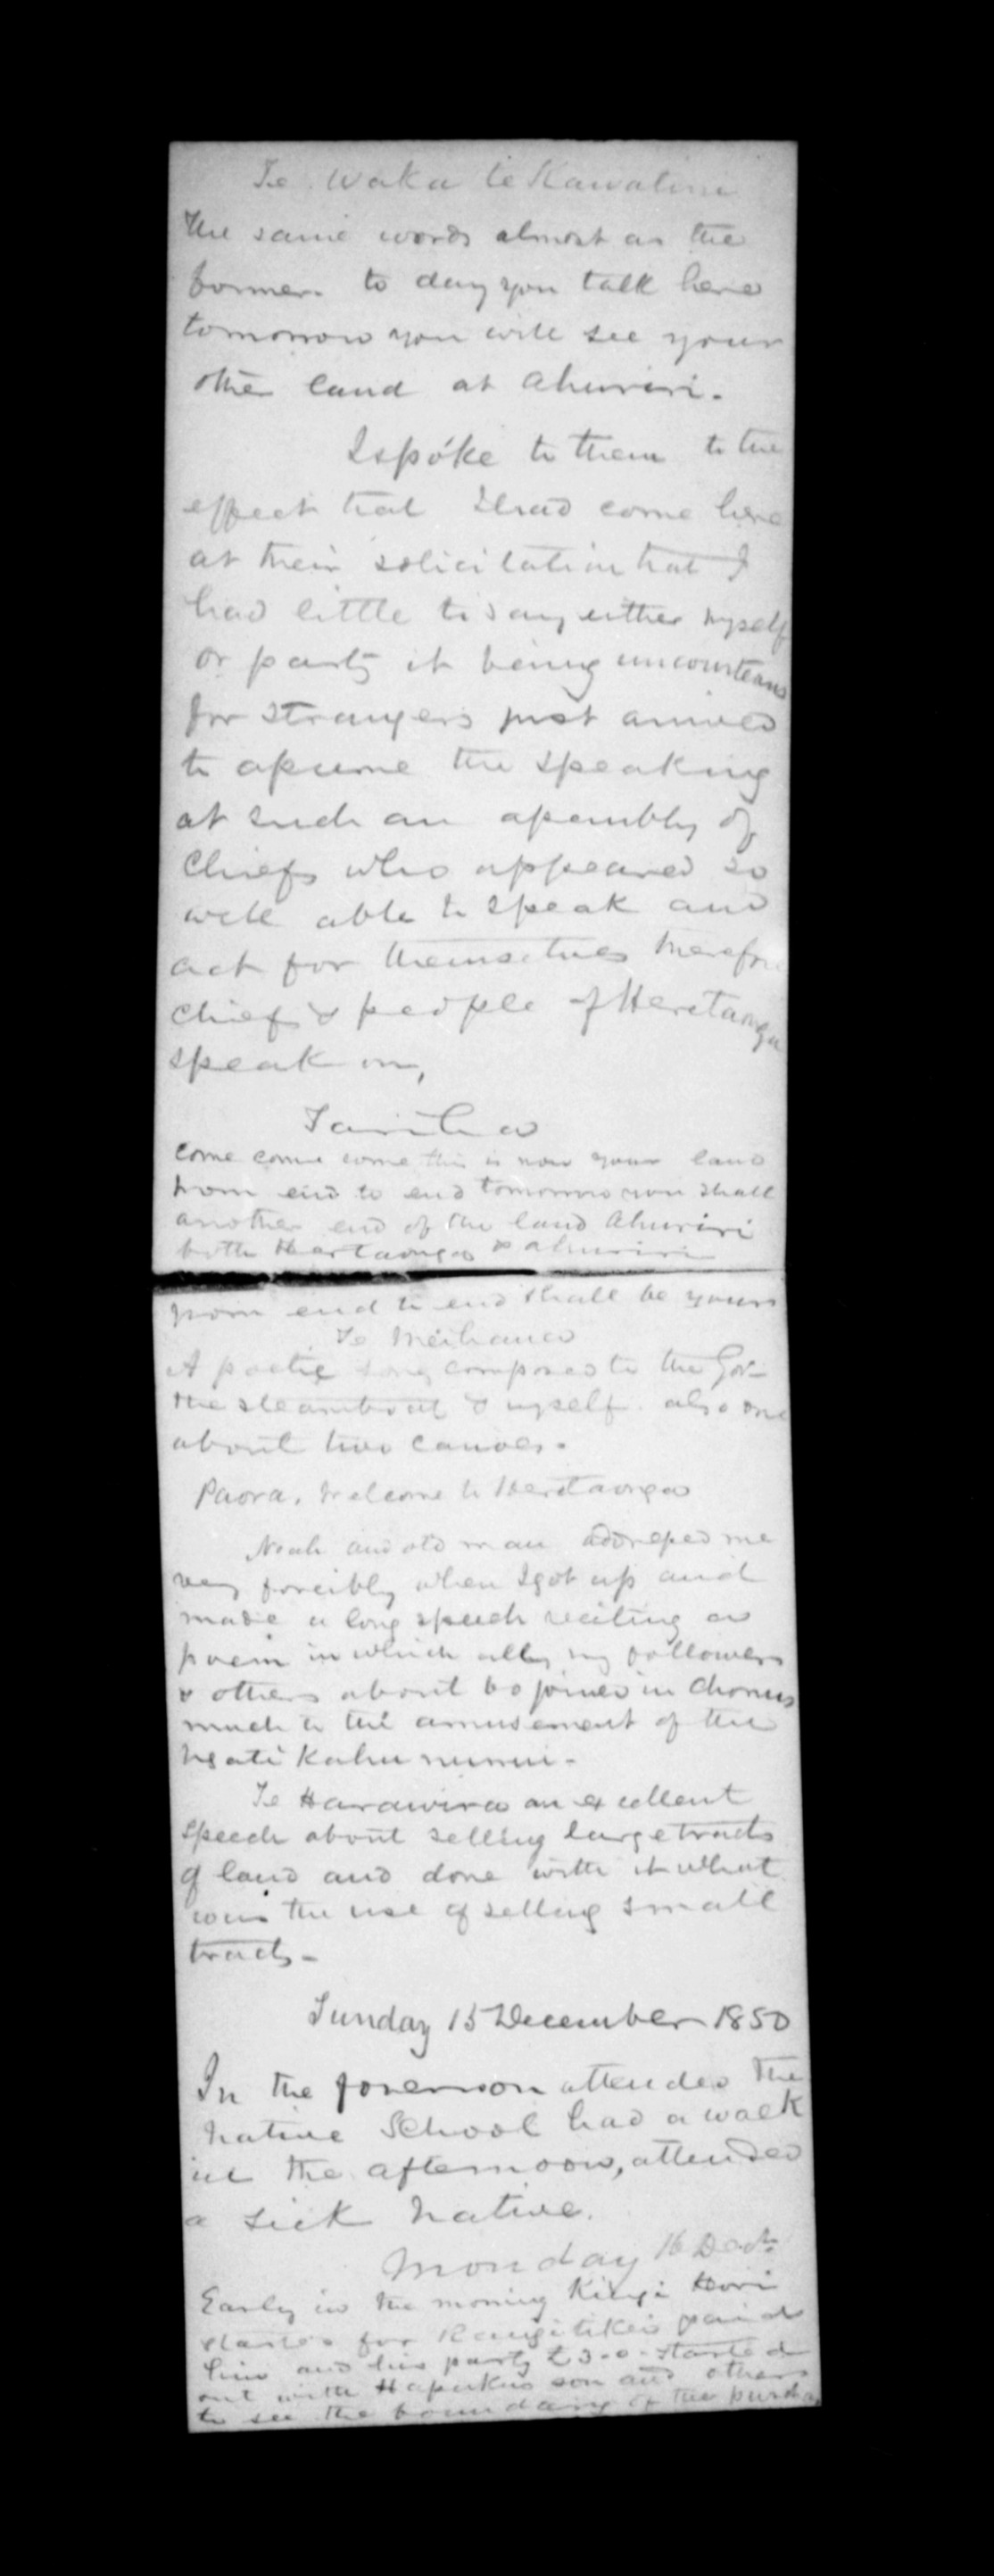 Te Waka te Kawatini
the same words almost as the
former. to day you talk here
tomorrow you will see your
other land at Ahuriri.
I spoke to them to the
effect that I had come here
at their solicitation that I
had little to say either myself
or party it being uncourteous
for strangers just arrived
to assume the speaking
at such an assembly of
Chiefs who appeared so
well able to speak and
act for themselves therefore
chiefs & people of Heretaunga
speak on,
Tareha
come come come this is now your land
from end to end tomorrow you shall
another end of the land Ahuriri
both Heretaunga & Ahuriri
from end to end shall be yours
Te Meihana
A poetic song composed to the Gov-
the steamboat & myself. also one
about two canoes.
Paora. Welcome to Heretaunga
Noah an old man addressed me
very forcibly when I got up and
made a long speech reciting a
poem in which all my followers
& others about 60 joined in chorus
much to the amusement of the
Ngati Kahununu -
Te Harawira an excellent
speech about selling large tracts
of land and done with it what
was the use of selling small
tracts -
Sunday 15 December 1850
In the forenoon attended the
native School had a walk
in the afternoon, attended
a sick native.
Monday 16 Decr
Early in the morning Kingi Hori
started for Rangitikei paid
him and his party £3-0- started
out with Hapukus son and others
to see the boundary of the purcha